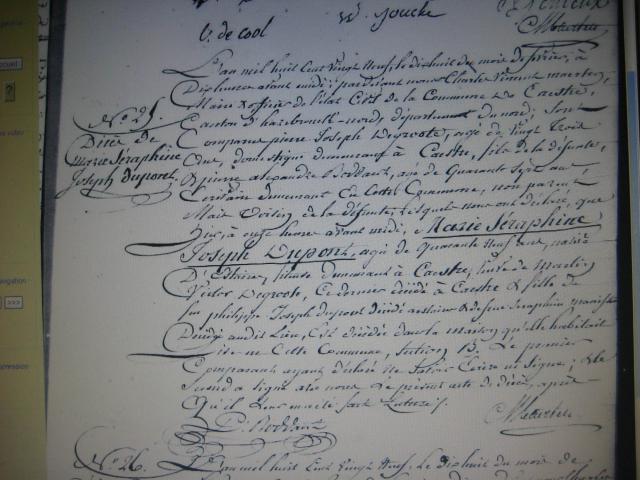 V. de Cool W. Joucke
CMaerten
L'an mil huit Cent Vingt Neuf, le dixhuit du mois de fevrier, à
Dix heures avant midi; pardevant nous Charles Vincent maerten,
Maire & officier de l'état Civil de la Commune de Caestre,
Canton d'hazebrouck-nord, département du nord; sont
N°. 25.
Décès de
Marie Séraphine
Joseph Dupont.
Comparus pierre Joseph Degroote, agé de Vingt Trois
ans, domestique demeurant à Caestre, fils de la défunte,
& pierre alexandre Boddaert, agé de Quarante Sept ans,
Ecrivain demeurant En Cette Commune, non parent
Mais Voisin de la défunte, lesquels nous ont déclaré, que
hier, à onze heures avant midi, Marie Séraphine
Joseph Dupont, agée de Quarante Neuf ans, native
D'Estaires, fileuse demeurant à Caestre, veuve de Martin
Victor Degroote, Ce dernier décédé à Caestre & fille de
feu philippe Joseph dupont décédé & de feue Seraphin
audit Lieu, Est décédée dans la maison qu'elle habitait
Sise en Cette Commune, Section B. Le premier
Comparant ayant déclaré ne Savoir Ecrire ni Signer; & le
Second a signé avec nous Le présent acte de décès, après
Qu'il Leur en a été fait Lecture.
CMaerten
N°. 26. L'an mil huit Cent Vingt Neuf, le dixhuit du mois de
>>>